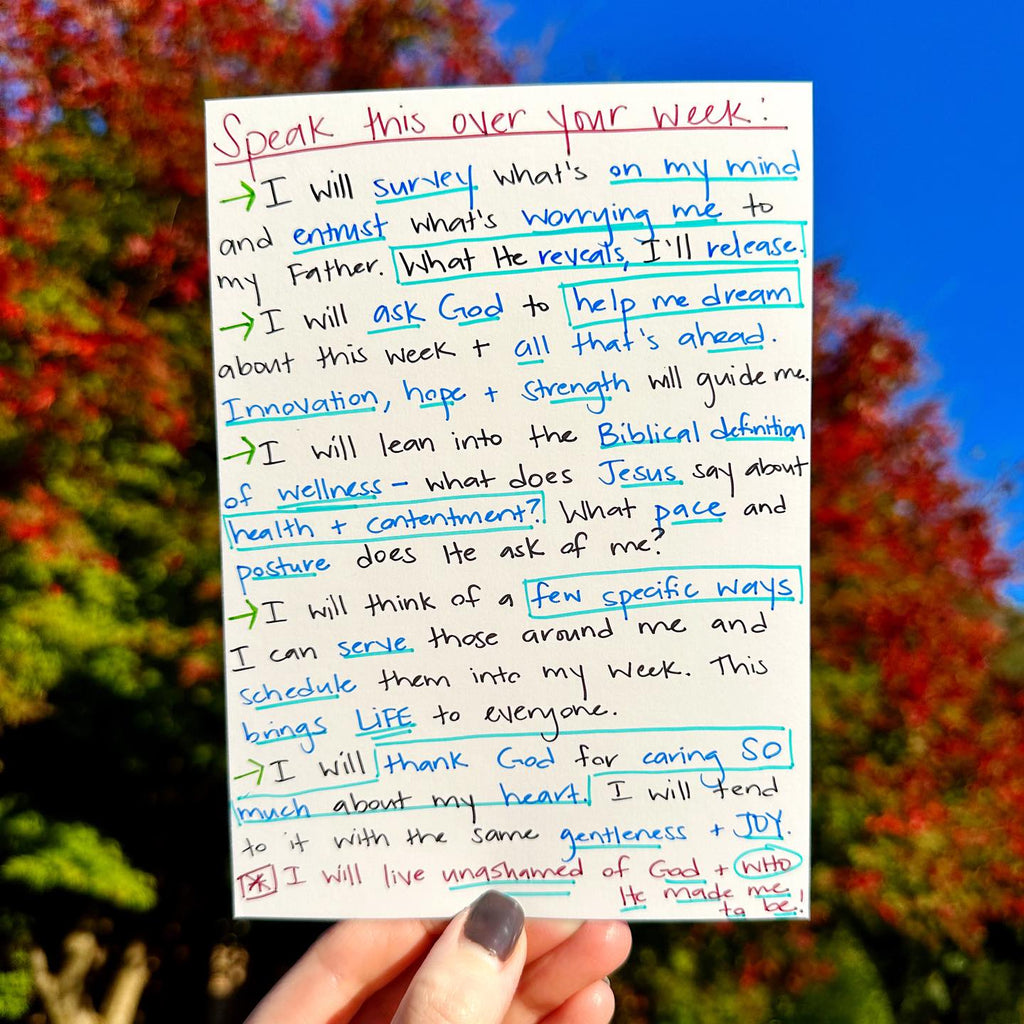 Speak this over your week:
→ I will survey what's on my mind
and entrust what's worrying me to
my Father. What He reveals, I'll release.
→ I will ask God to help me dream
about this week + all that's ahead.
Innovation, hope + strength will guide me.
→ I will lean into the Biblical definition
of wellness – what does Jesus say about
health + contentment? What pace and
posture does He ask of me?
→ I will think of a few specific ways
I can serve those around me and
schedule them into my week. This
brings LIFE to everyone.
→ I will thank God for caring SO
much about my heart. I will tend
to it with the same gentleness + JOY.
* I will live unashamed of God + WHO
He made me
to be!